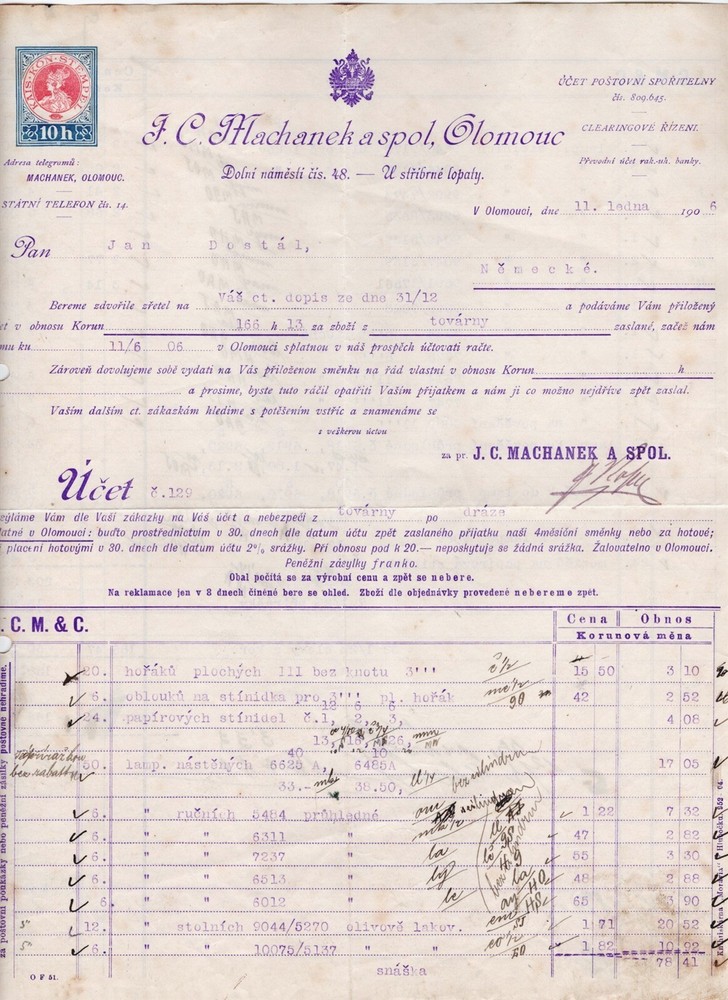 KAIS. KÖN. STEMPEL
10 h
ÚČET POŠTOVNÍ SPOŘITELNY
čís. 809.645.
CLEARINGOVÉ ŘÍZENÍ.
Převodní účet rak.-uh. banky.
J. C. Machanek a spol, Olomouc
Dolní náměstí čís. 48. — U stříbrné lopaty.
Adresa telegramů:
MACHANEK, OLOMOUC.
STÁTNÍ TELEFON čís. 14.
V Olomouci, dne 11. ledna 1906
Pan Jan Dostál,
Německé.
Bereme zdvořile zřetel na Váš ct. dopis ze dne 31/12 a podáváme Vám přiložený
et v obnosu Korun 166 h 13 za zboží z továrny zaslané, začež nám
mu ku 11/6 06 v Olomouci splatnou v náš prospěch účtovati račte.
Zároveň dovolujeme sobě vydati na Vás přiloženou směnku na řád vlastní v obnosu Korun h
a prosíme, byste tuto ráčil opatřiti Vaším přijatkem a nám ji co možno nejdříve zpět zaslal.
Vaším dalším ct. zakázkám hledíme s potěšením vstříc a znamenáme se
s veškerou úctou
za pr. J. C. MACHANEK A SPOL.
Účet č.129
sýláme Vám dle Vaší zákazky na Váš účet a nebezpečí z továrny po dráze
latné v Olomouci: buďto prostřednictvím v 30. dnech dle datum účtu zpět zaslaného přijatku naší 4měsíční směnky nebo za hotové;
i placení hotovými v 30. dnech dle datum účtu 2% srážky. Při obnosu pod k 20.— neposkytuje se žádná srážka. Žalovatelno v Olomouci.
Peněžní zásylky franko.
Obal počítá se za výrobní cenu a zpět se nebere.
Na reklamace jen v 8 dnech činěné bere se ohled. Zboží dle objednávky provedené nebereme zpět.
. C. M. & C.
Cena Obnos
Korunová měna
20. hořáků plochých 111 bez knotu 3''' 15 50 3 10
6. oblouků na stínidka pro 3''' pl. hořák 42 2 52
12 6 6
24. papírových stínidel č.1, 2, 3, 4 08
13, 15, 26,
40 10
50. lamp. nástěnných 6625 A, 6485A 17 05
33.— 38.50,
6. " ručních 5484 průhledné 1 22 7 32
6. " " 6311 " 47 2 82
6. " " 7237 " 55 3 30
6. " " 6513 " 48 2 88
6. " " 6012 " 65 3 90
12. " stolních 9044/5270 olivově lakov. 1 71 20 52
6. " " 10075/5137 " " 1 82 10 92
78 41
snáška
O F 51.
za poštovní poukázky nebo peněžní zásilky poštovné nehradíme.